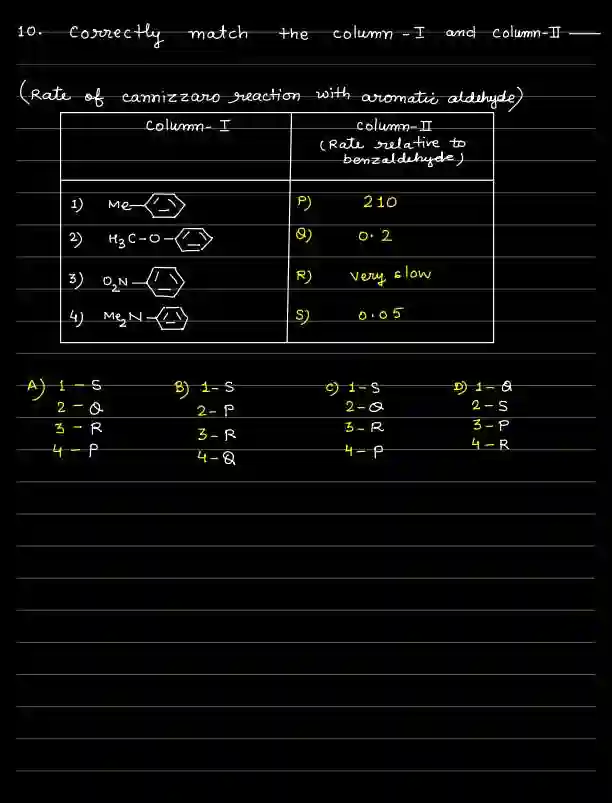 10. Correctly match the column - I and column-II —
(Rate of cannizzaro reaction with aromatic aldehyde)
Column- I column-II
(Rate relative to
benzaldehyde)
1) Me- P) 210
2) H3C-O- Q) 0.2
3) O2N- R) very slow
4) Me2N- S) 0.05
A) 1 - S B) 1- S C) 1- S D) 1- Q
2 - Q 2- P 2-Q 2 - S
3 - R 3 - R 3 - R 3 - P
4 - P 4 - Q 4 - P 4 - R